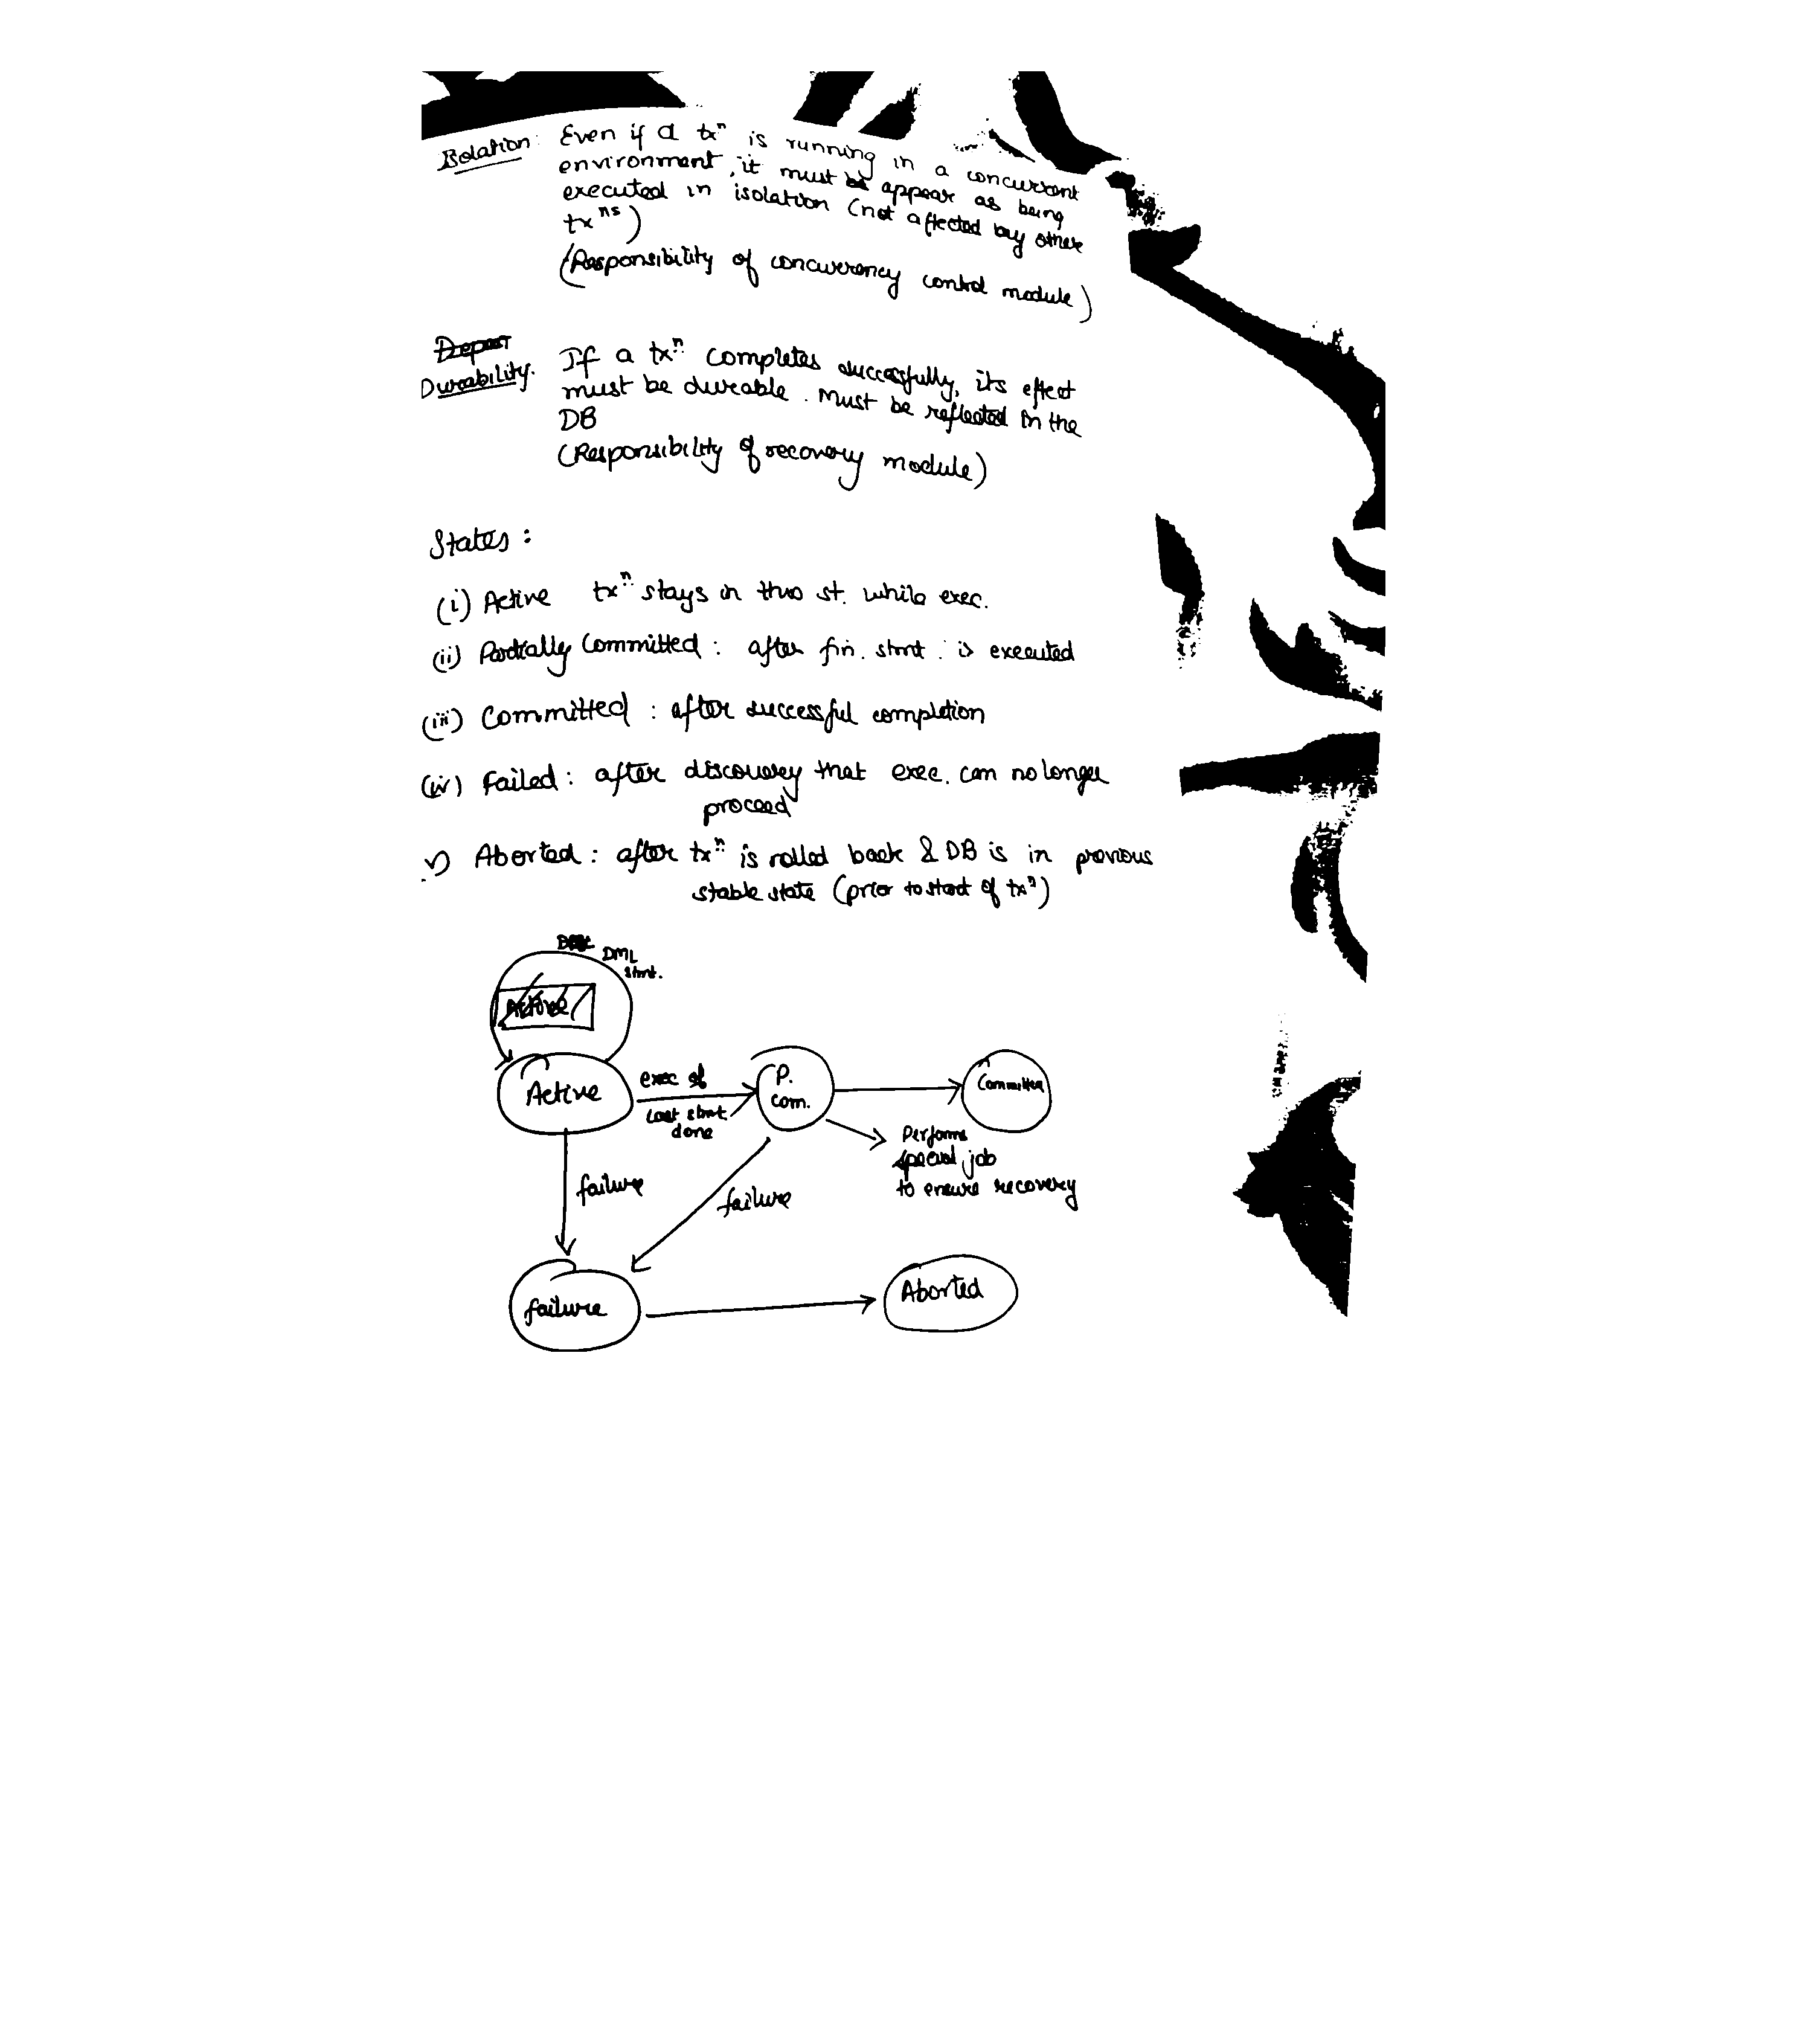 Isolation: Even if a txⁿ is running in a concurrent
environment, it must be appear as being
executed in isolation (not affected by other
txⁿˢ)
(Responsibility of concurrency control module)
Durability. If a txⁿ completes successfully, its effect
must be durable. Must be reflected in the
DB
(Responsibility of recovery module)
States:
(i) Active txⁿ stays in this st. while exec.
(ii) Partially Committed: after fin. stmt. is executed
(iii) Committed: after successful completion
(iv) Failed: after discovery that exec. can no longer
proceed
v) Aborted: after txⁿ is rolled back & DB is in previous
stable state (prior to start of txⁿ)
DML
stmt.
Active
Active
exec of
last stmt.
done
P.
com.
Committed
Performs
special job
to ensure recovery
failure
failure
failure
Aborted